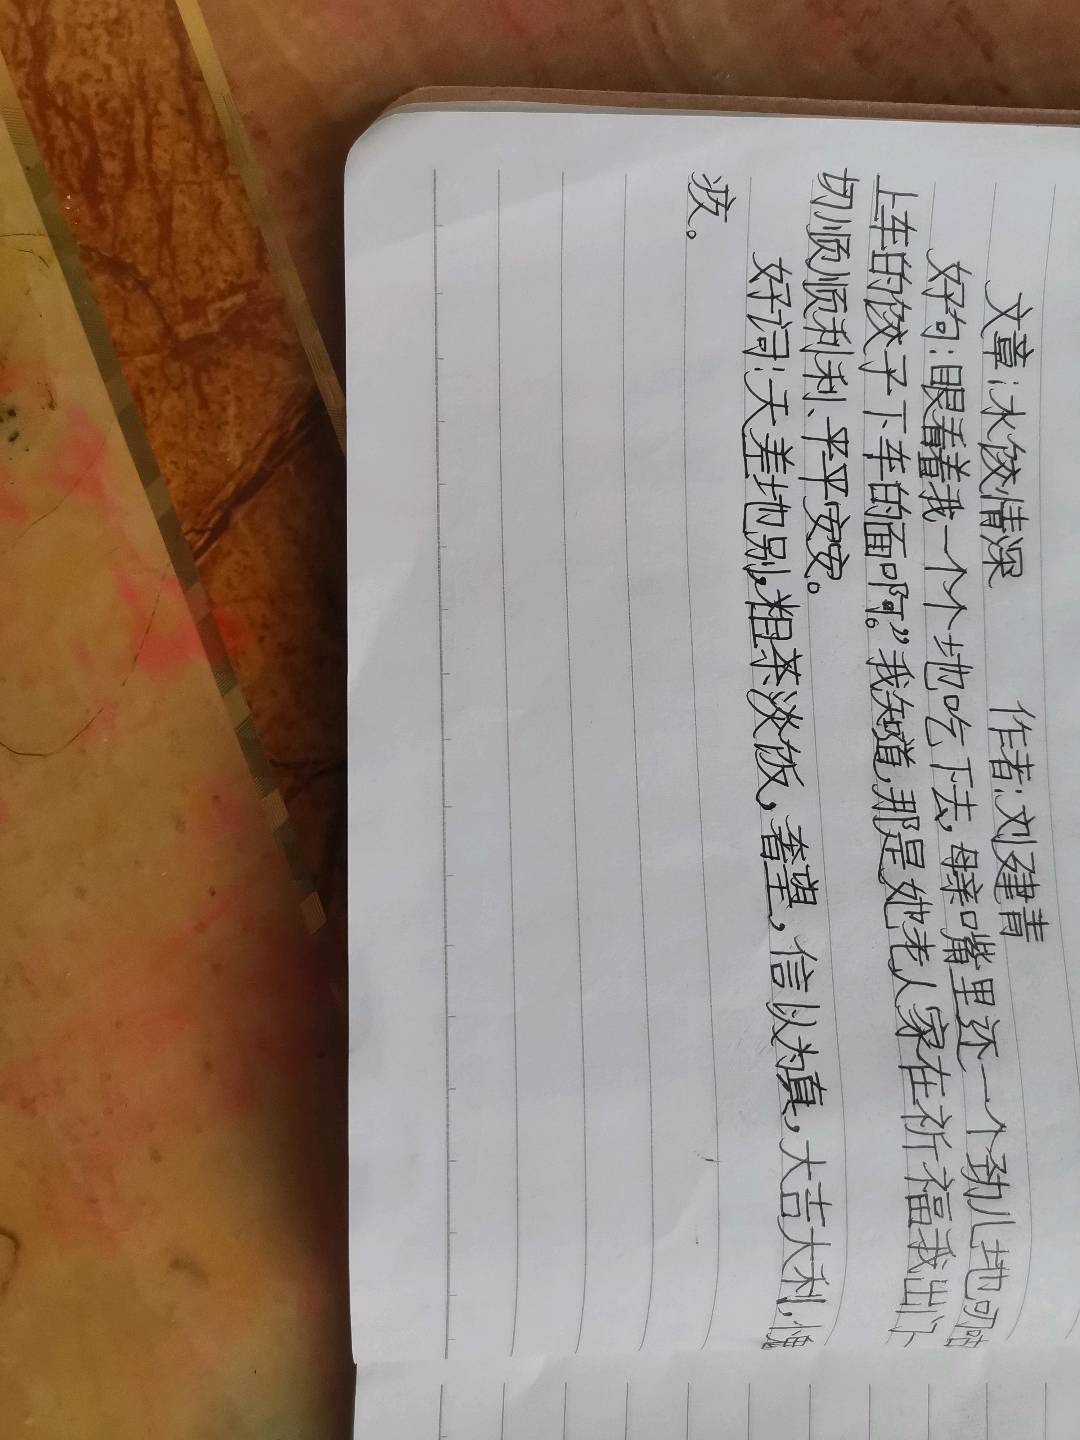 文章:水饺情深 作者:刘建青
好句:眼看着我一个个地吃下去,母亲嘴里还一个劲儿地叨咕
上车的饺子下车的面啊。”我知道,那是她老人家在祈福我出门
切顺顺利利、平平安安。
好词:天差地别,粗茶淡饭,奢望,信以为真,大吉大利,愧
疚。